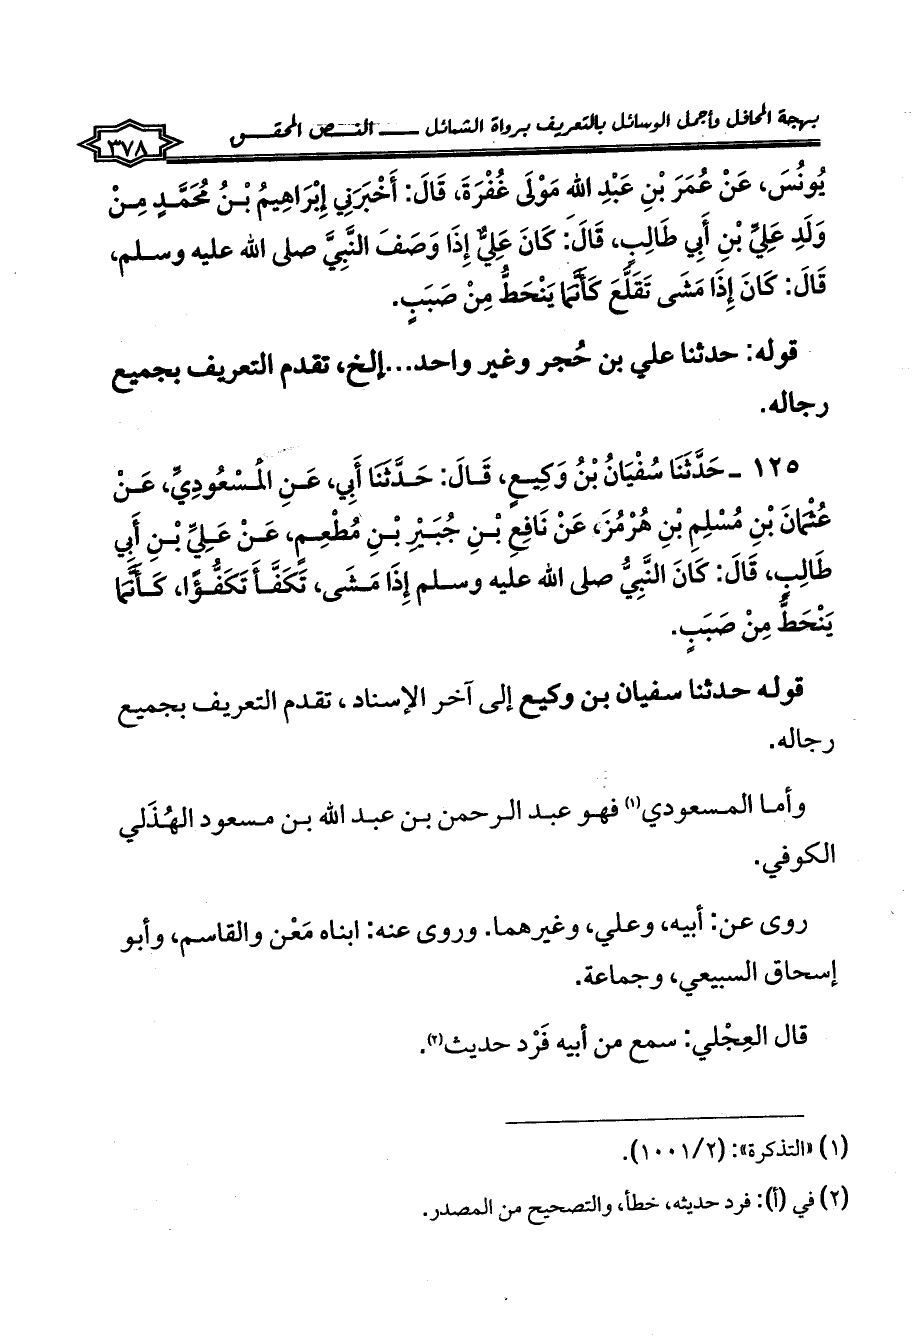 بهجة المحافل وأجمل الوسائل بالتعريف برواة الشمائل ــــ النــص المحقــق
٣٧٨
يُونُسَ، عَنْ عُمَرَ بْنِ عَبْدِ الله مَوْلَى غُفْرَةَ، قَالَ: أَخْبَرَنِي إِبْرَاهِيمُ بْـنُ مُحَمَّـدٍ مِـنْ
وَلَدِ عَلِيِّ بْنِ أَبِي طَالِبٍ، قَالَ: كَانَ عَلِيٌّ إِذَا وَصَفَ النَّبِيَّ صلى الله عليه وسـلم،
قَالَ: كَانَ إِذَا مَشَى تَقَلَّعَ كَأَنَّمَا يَنْحَطُّ مِنْ صَبَبٍ.
قوله: حدثنا علي بن حُجر وغير واحد...إلخ، تقدم التعريف بجميع
رجاله.
١٢٥ ـ حَدَّثَنَا سُفْيَانُ بْنُ وَكِيعٍ، قَـالَ: حَـدَّثَنَا أَبِي، عَـنِ الْمَسْعُودِيِّ، عَـنْ
عُثْمَانَ بْنِ مُسْلِمِ بْنِ هُرْمُزَ، عَنْ نَافِعِ بْـنِ جُبَيْرِ بْـنِ مُطْعِـمٍ، عَـنْ عَلِيِّ بْـنِ أَبِي
طَالِبٍ، قَالَ: كَانَ النَّبِيُّ صلى الله عليه وسـلم إِذَا مَـشَى، تَكَفَّـأَ تَكَفُّـؤًا، كَـأَنَّمَا
يَنْحَطُّ مِنْ صَبَبٍ.
قوله حدثنا سفيان بن وكيع إلى آخر الإسناد، تقدم التعريف بجميع
رجاله.
وأمـا المـسعودي(١) فهـو عبـد الـرحمن بـن عبـد الله بـن مـسعود الهُـذَلي
الكوفي.
روى عن: أبيه، وعلي، وغيرهما. وروى عنه: ابناه مَعْن والقاسم، وأبو
إسحاق السبيعي، وجماعة.
قال العِجْلي: سمع من أبيه فَرْد حديث(٢).
(١) «التذكرة»: (١٠٠١/٢).
(٢) في (أ): فرد حديثه، خطأ، والتصحيح من المصدر.